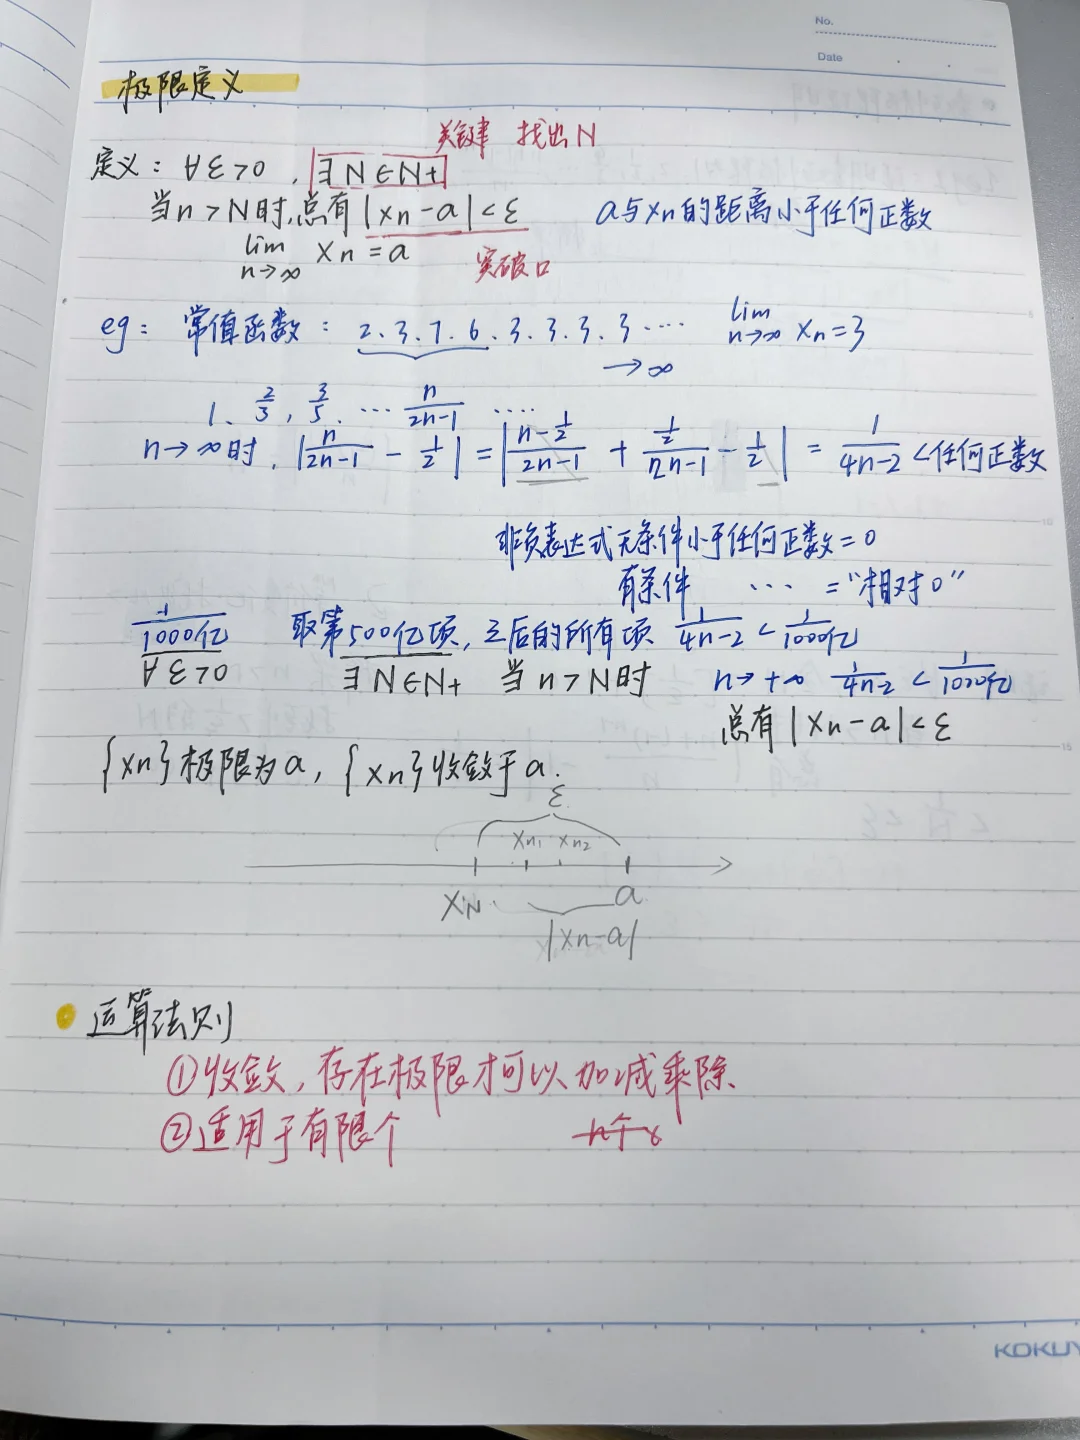 No.
Date
极限定义
关键 找出N
定义：∀ε>0，∃N∈N+
当n>N时,总有|xn-a|<ε a与xn的距离小于任何正数
lim n→∞ xn=a 突破口
eg：常值函数：2.3.7.6.3.3.3.3…… lim n→∞ xn=3
→∞
1、2/3，3/5，… n/2n-1 ……
n→∞时，|n/2n-1 - 1/2| = |n-1/2/2n-1 + 1/2/2n-1 - 1/2| = 1/4n-2 <任何正数
非负表达式无条件小于任何正数=0
有条件 … ="相对0"
1/1000亿 取第500亿项，之后的所有项 1/4n-2 < 1/1000亿
∀ε>0 ∃N∈N+ 当n>N时 n→+∞ 1/4n-2 < 1/1000亿
总有|xn-a|<ε
{xn}极限为a，{xn}收敛于a.
ε
xn1 xn2
xN a
|xn-a|
运算法则
①收敛，存在极限才可以加减乘除
②适用于有限个 n个x
KOKUY